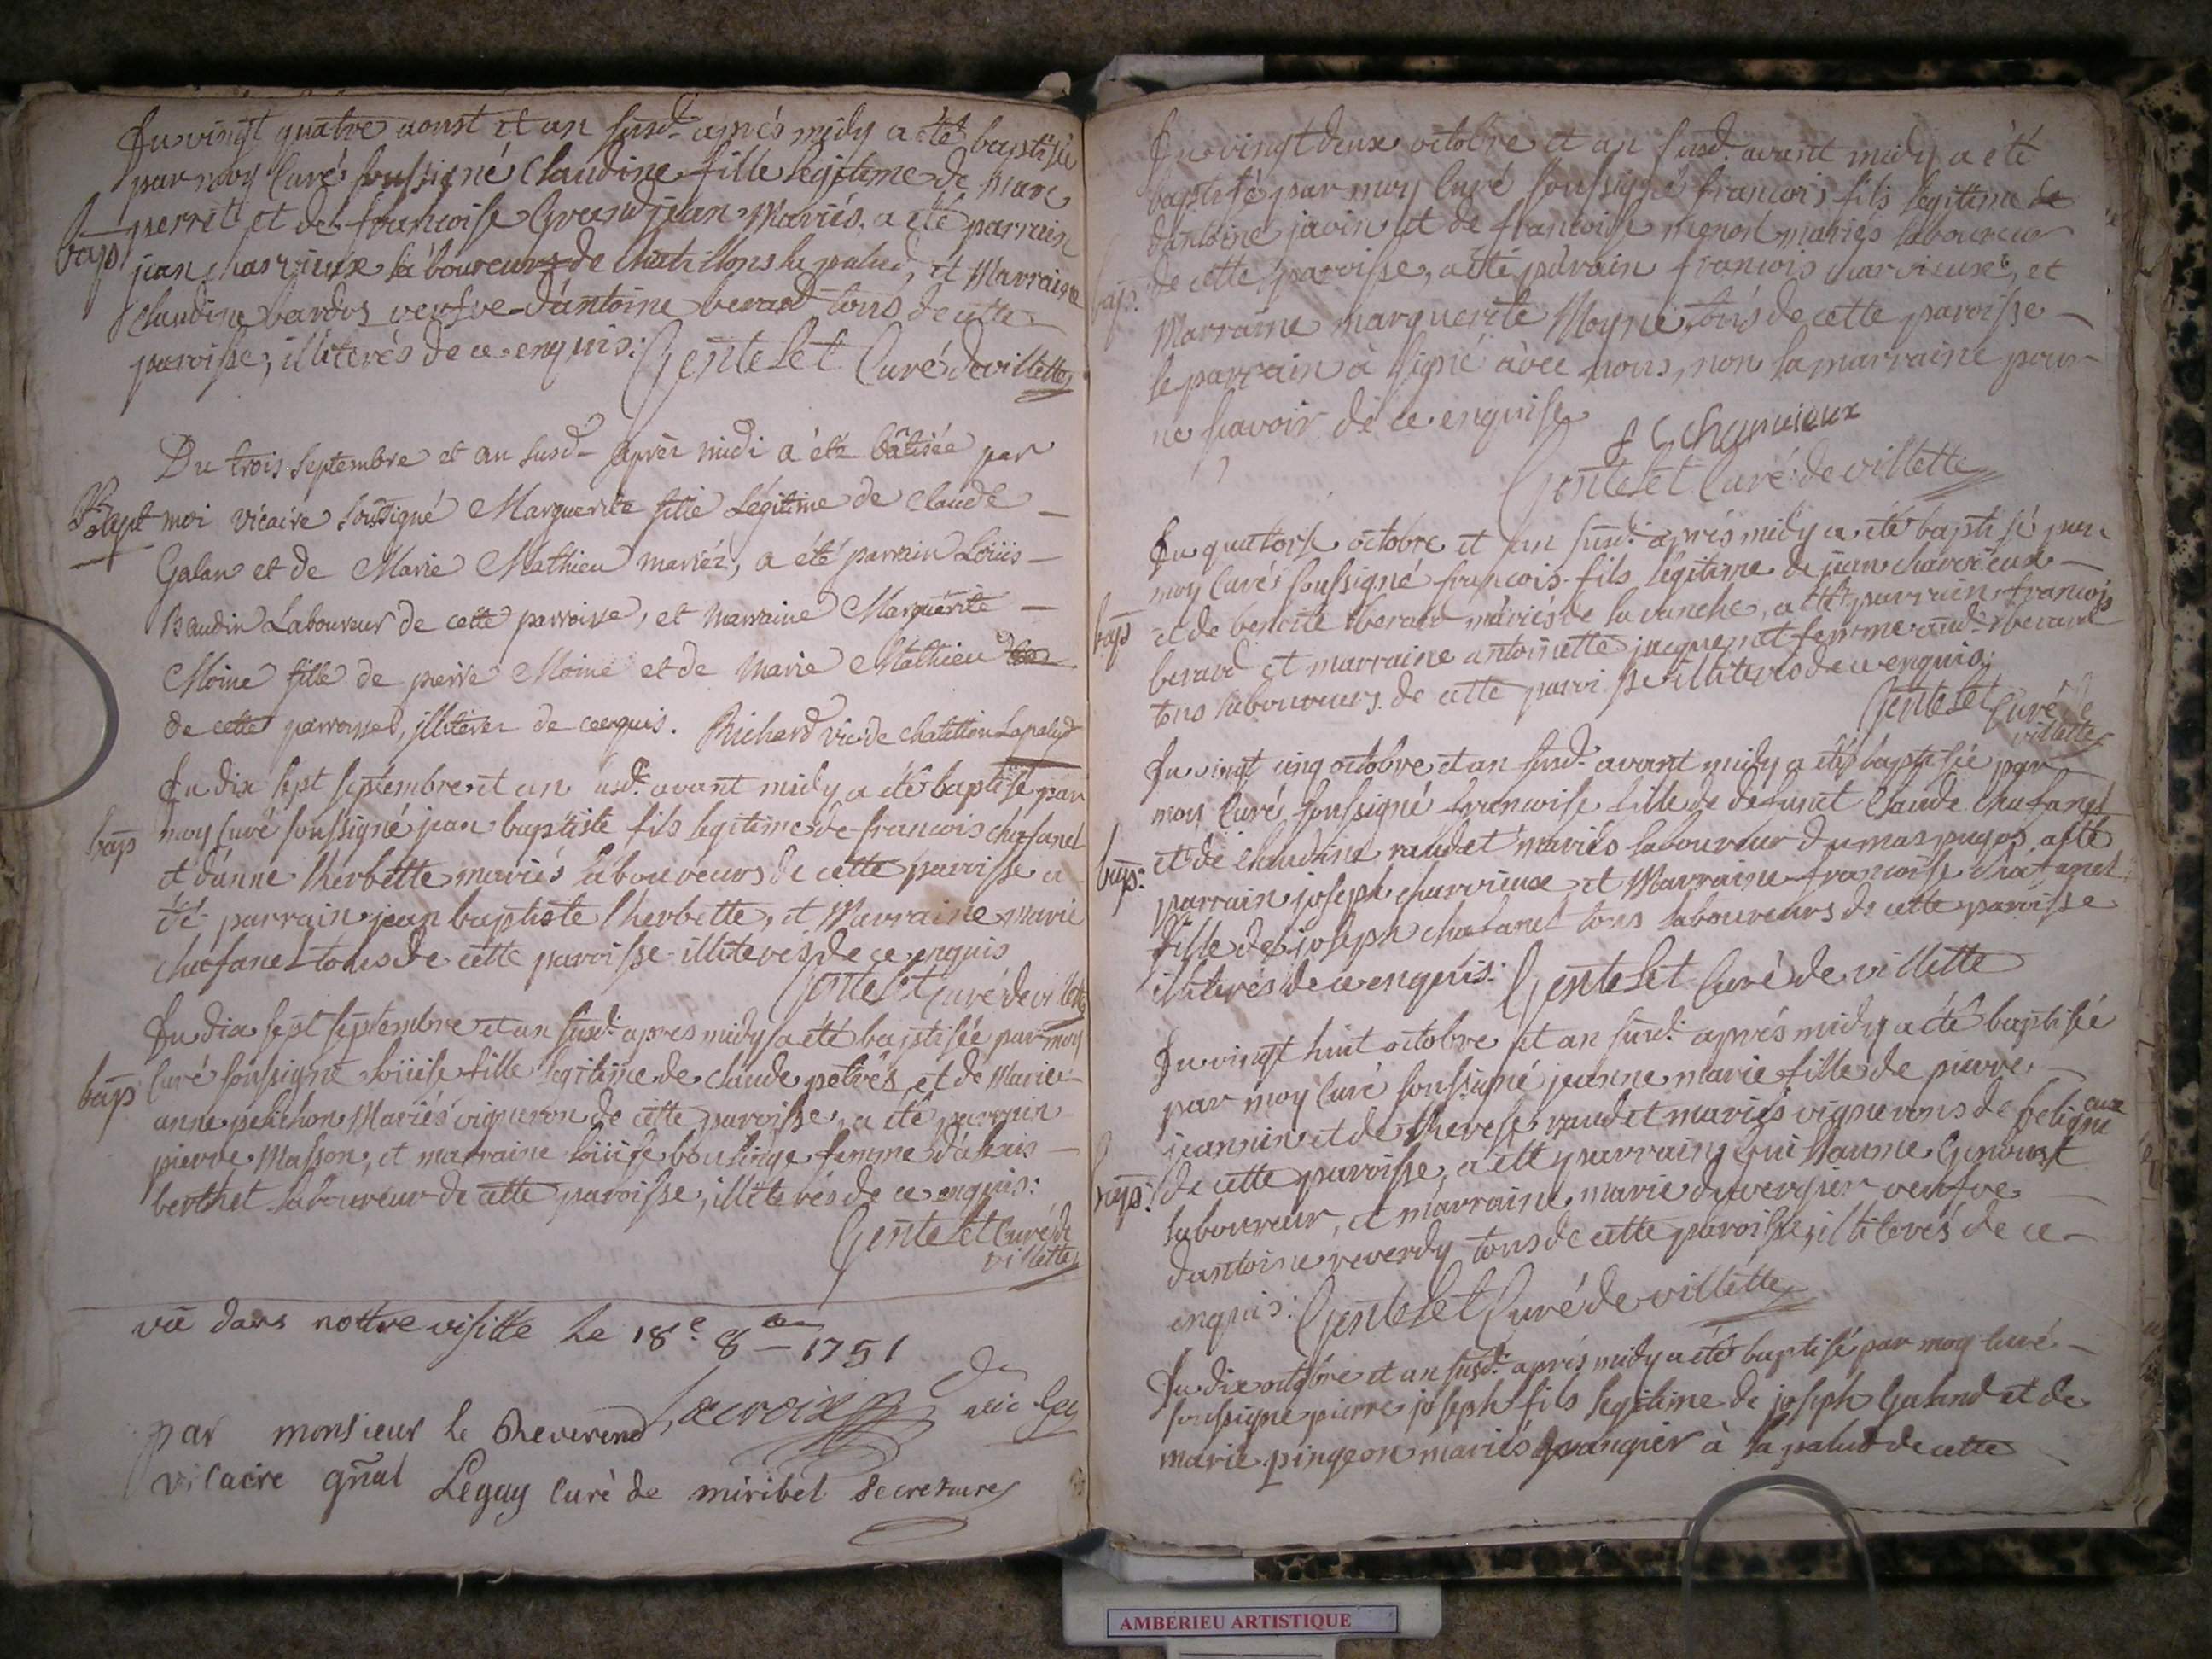 Du vingt quatre aoust et an susd. aprés midy a été baptisée
par moy Curé soussigné Claudine fille legitime de Marc
perret et de francoise Grandjean Mariés. a été parrain
bap
jean charvieux laboureur de Chatillons la palud, et Marraine
claudine bardos veufve d'antoine berard tous de cette
paroisse, illiterés de ce enquis: Gentelet Curé de villette
Du trois septembre et an susd. aprèz midi a été bâtisée par
Bapt moi vicaire soussigné Marguerite fille Légitime de Claude
Galan et de Marie Mathieu mariéz, a été parrain Loüis
Baudin Laboureur de cette parroisse, et marraine Marguérite
Moine fille de pierre Moine et de Marie Mathieu
de cette parroisse, illiterez de ce enquis. Richard vic. de Chatillon Lapalud
Du dix sept septembre et an susd. avant midy a été baptisé par
bap moy Curé soussigné jean baptiste fils legitime de francois chafanel
et d'anne l'herbette mariés laboureurs de cette paroisse a
été parrain jean baptiste l'herbette, et Marraine marie
chafanel tous de cette paroisse illiterés de ce enquis
Gentelet Curé de villette
Du dix sept septembre et an susd. apres midy a été baptisée par moy
bap Curé soussigné loüise fille legitime de claude petres et de Marie
anne pelichon Mariés vigneron de cette paroisse, a été parrain
pierre Masson, et marraine loüise boulinge femme d'
berthet laboureur de cette paroisse, illiterés de ce enquis:
Gentelet Curé de
villette
vû dans nottre visitte le 18e 8bre 1751
Lacroix
vic. Gen
par monsieur le Reverend
vicaire gñal Leguy Curé de miribel secretaire
Du vingt deux octobre et an susd. avant midy a été
baptisé par moy Curé soussigné francois fils legitime
d'antoine javin et de francoise menod mariés laboureur
bap: de cette paroisse, a été parrain francois charvieux, et
Marraine marguerite Moyne, tous de cette paroisse
le parrain à signé avec nous, non la marraine pour
ne scavoir de ce enquise
f charvieux
Gentelet Curé de villette
Du quatorse octobre et an susd. aprés midy a été baptisé par
moy Curé soussigné francois fils legitime de jean charvieux
bap et de benoite berard mariés de la ranche, a été parrain francois
berard et marraine antoinette jacquemet femme aud. berard
tous laboureurs de cette paroisse illiterés de ce enquis:
Gentelet Curé de
villette
Du vingt cinq octobre et an susd. avant midy a été baptisée par
moy Curé soussigné francoise fille de defunct Claude chafanel
bap: et de claudine raudet mariés laboureur du mas pugos a été
parrain joseph charvieux et Marraine francoise chafanel
fille de joseph chafanel tous laboureurs de cette paroisse
illiterés de ce enquis: Gentelet Curé de villette
Du vingt huit octobre et an susd. aprés midy a été baptisée
par moy Curé soussigné jeanne marie fille de pierre
jeannin et de therese raudet mariés vignerons de feligneux
bap: de cette paroisse, a été parrain guillaume Genoust
laboureur, et marraine marie duvergier veufve
d'antoine reverdy tous de cette paroisse, illiterés de ce
enquis: Gentelet Curé de villette
Du dix octobre et an susd. aprés midy a été baptisé par moy Curé
soussigné pierre joseph fils legitime de joseph Galand et de
marie pingeon mariés grangier à la palud de cette
AMBERIEU ARTISTIQUE